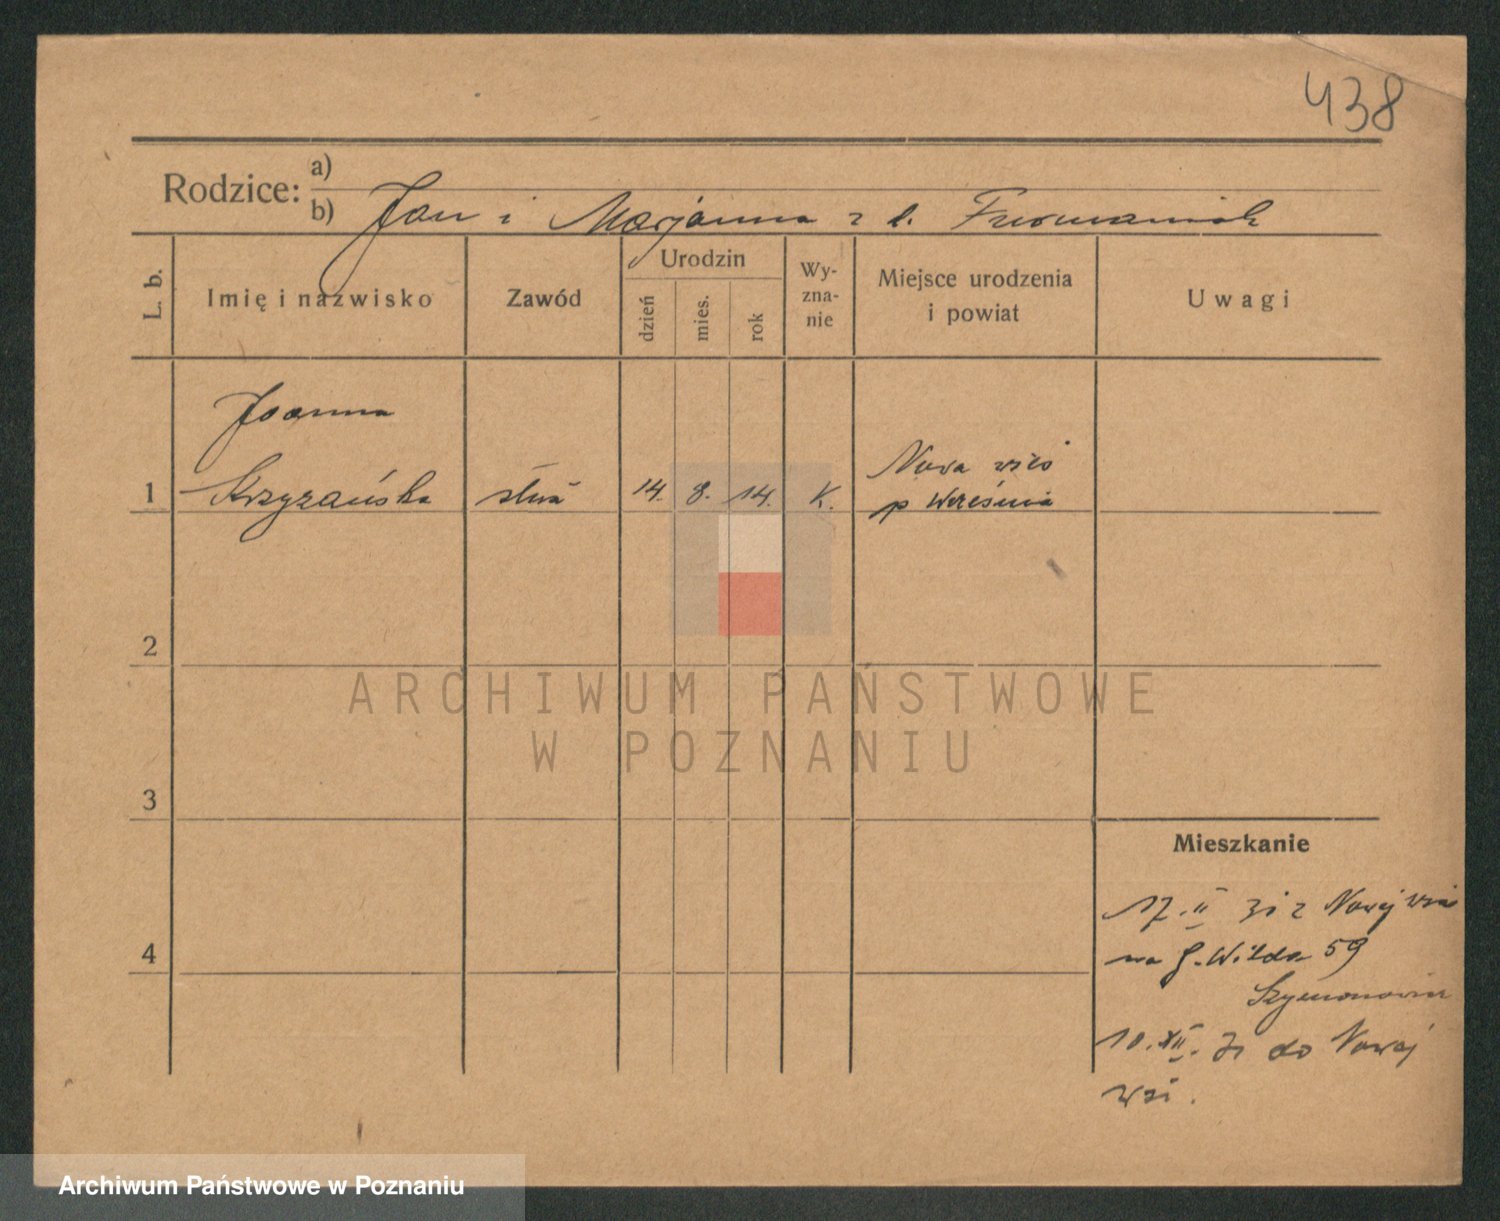 438
Rodzice: a)
b) Jan i Marjanna z d. Furmaniak
L. b.
Imię i nazwisko
Zawód
Urodzin
dzień
mies.
rok
Wy-
zna-
nie
Miejsce urodzenia
i powiat
Uwagi
Joanna
1 Krzyżańska służ 14. 8. 14. K.
Nowa wieś
p Września
2
3
4
ARCHIWUM PAŃSTWOWE
W POZNANIU
Mieszkanie
17.II 31 z Nowej wsi
na G. Wilda 59
10.XII. 31 do Nowej
wsi.
Archiwum Państwowe w Poznaniu